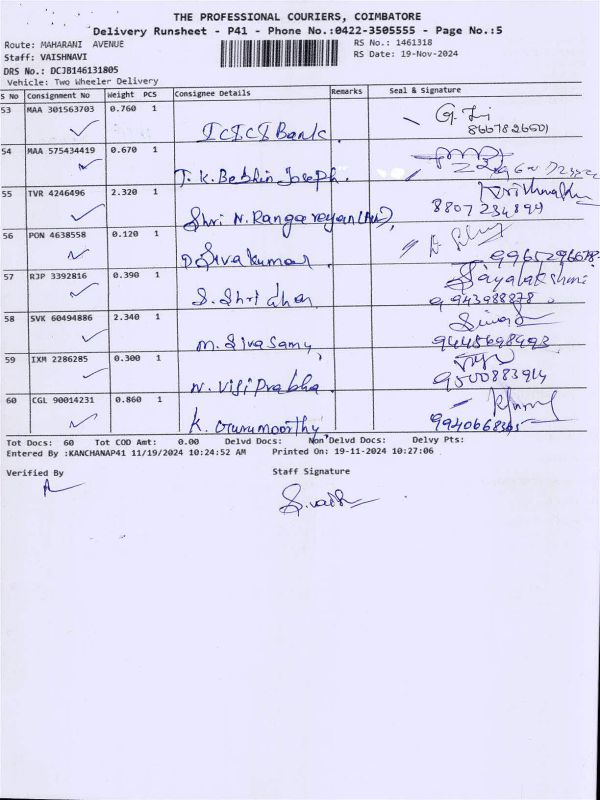 THE PROFESSIONAL COURIERS, COIMBATORE
Delivery Runsheet - P41 - Phone No.:0422-3505555 - Page No.:5
Route: MAHARANI AVENUE
RS No.: 1461318
Staff: VAISHNAVI
RS Date: 19-Nov-2024
DRS No.: DCJB146131805
Vehicle: Two Wheeler Delivery
S No Consignment No Weight PCS Consignee Details Remarks Seal & Signature
53 MAA 301563703 0.760 1 ICICI Bank.
54 MAA 575434419 0.670 1 Joseph.
55 TVR 4246496 2.320 1 Shri N. Rangarayan
8807234894
56 PON 4638558 0.120 1 D Sivakumar
9965296678
57 RJP 3392816 0.390 1 S. Shridhar Jayalakshmi
9943988878
58 SVK 60494886 2.340 1 M. Sivasamy
9445698493
59 IXM 2286285 0.300 1 N. Viji Prabha
9500883914
60 CGL 90014231 0.860 1 K. Gurumoorthy
Tot Docs: 60 Tot COD Amt: 0.00 Delvd Docs: Non Delvd Docs: Delvy Pts:
Entered By :KANCHANAP41 11/19/2024 10:24:52 AM Printed On: 19-11-2024 10:27:06
Verified By Staff Signature
S. Vaish